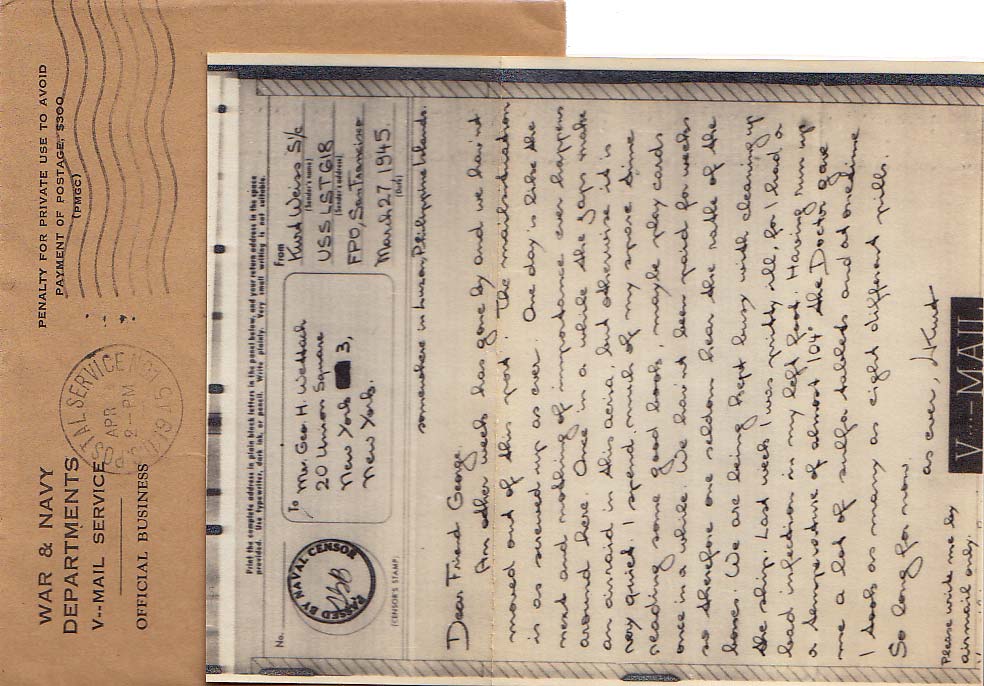 WAR & NAVY
DEPARTMENTS
V--MAIL SERVICE
OFFICIAL BUSINESS
POSTAL SERVICE NO
APR
2-PM
1945
PENALTY FOR PRIVATE USE TO AVOID
PAYMENT OF POSTAGE, $300
(PMGC)
Print the complete address in plain block letters in the panel below, and your return address in the space
provided. Use typewriter, dark ink, or pencil. Write plainly. Very small writing is not suitable.
No.
PASSED BY NAVAL CENSOR
(CENSOR'S STAMP)
To
Mr. Geo. H. Wettach
20 Union Square
New York 3,
New York.
From
Kurt Weiss S/c
(Sender's name)
USS LST 618
(Sender's address)
FPO, San Francisco
March 27 1945.
(Date)
somewhere in Luzon, Philippine Islands.
Dear Friend George.
Another week has gone by and we hav'nt
moved out of this port. The mailsituation
is as screwed up as ever. One day is like the
next and nothing of importance ever happens
around here. Once in a while the yaps make
an airraid in this aeria, but otherwise it is
very quiet. I spend much of my spare time
reading some good books, maybe play cards
once in a while. We hav'nt been paid for weeks
so therefore one seldom hear the rattle of the
bones. We are being kept busy with cleaning up
the ship. Last week I was pritty ill, for I had a
bad infection in my left foot. Having run up
a temperature of almost 104° the Doctor gave
me a lot of sulfa tablets and at onetime
I took as many as eight different pills.
So long for now
as ever, Kurt
Please write me by
airmail only.
V···-MAIL